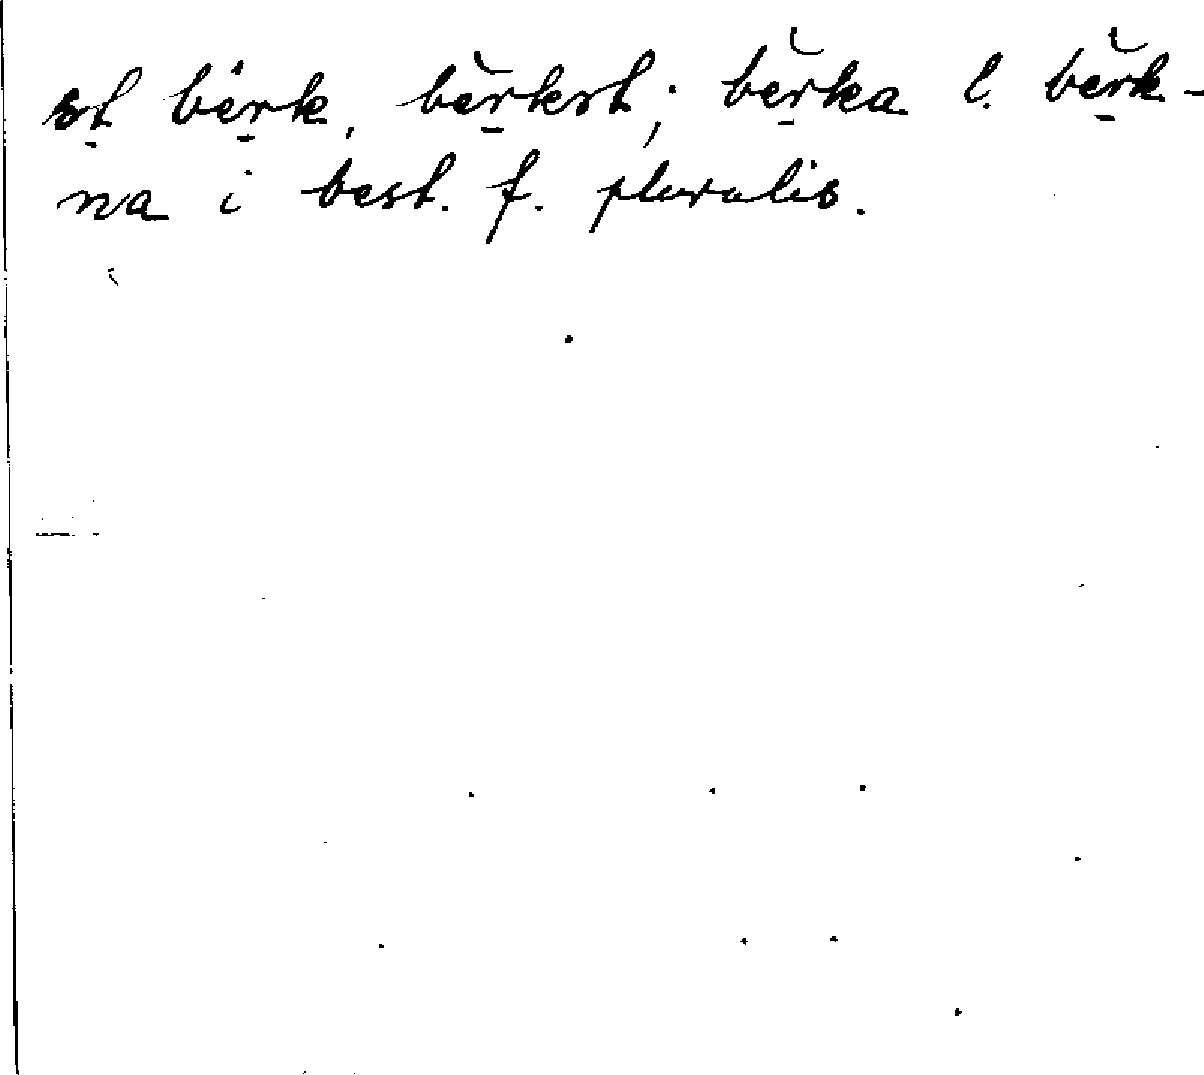 st bėrk, bèrkst; běrka l. běrk-
na i best. f. pluralis.